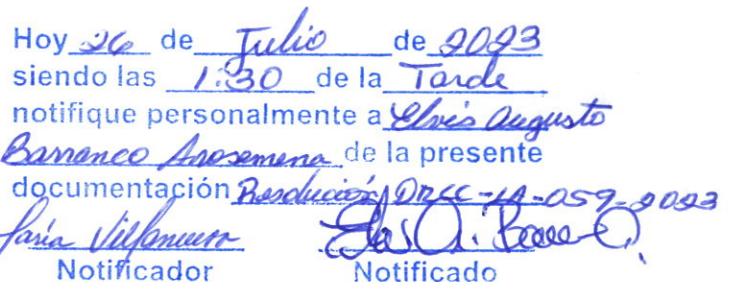 Hoy 26 de Julio de 2023
siendo las 1:30 de la Tarde
notifique personalmente a Elvis Augusto
Barranco Arosemena de la presente
documentación Resolución DRCC-IA-059-2023
Villanueva
Notificador Notificado